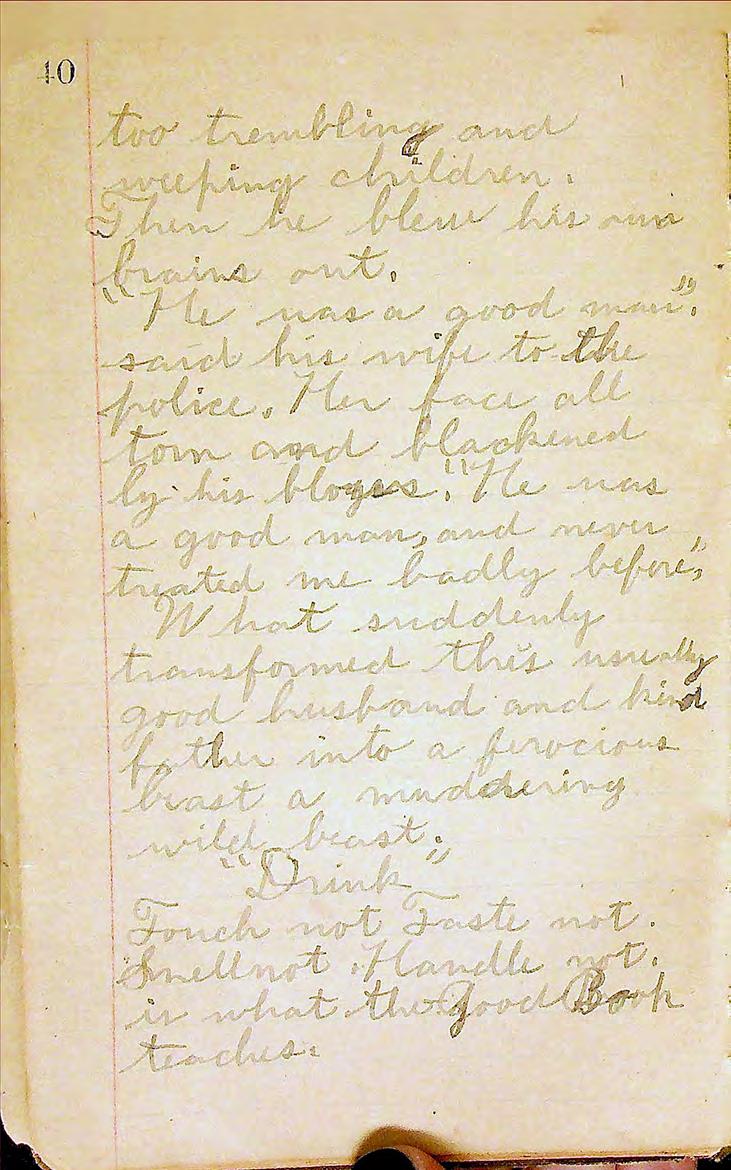 40
too trembling and
weeping children.
Then he blew his own
brains out.
"He was a good man".
said his wife to the
police. Her face all
torn and blackened
by his blows. "He was
a good man, and never
treated me badly before",
What suddenly
transformed this usually
good husband and kind
father into a ferocious
beast a muddering
wild beast.
"Drink"
Touch not Taste not.
Smell not. Handle not.
is what the good Book
teaches.